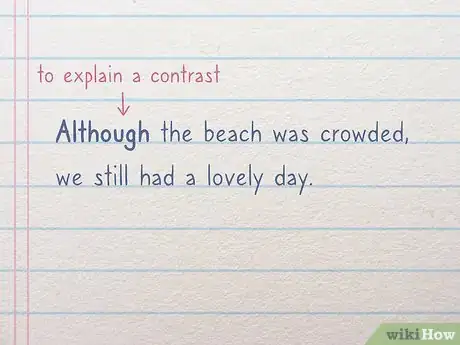 to explain a contrast
Although the beach was crowded,
we still had a lovely day.
wikiHow